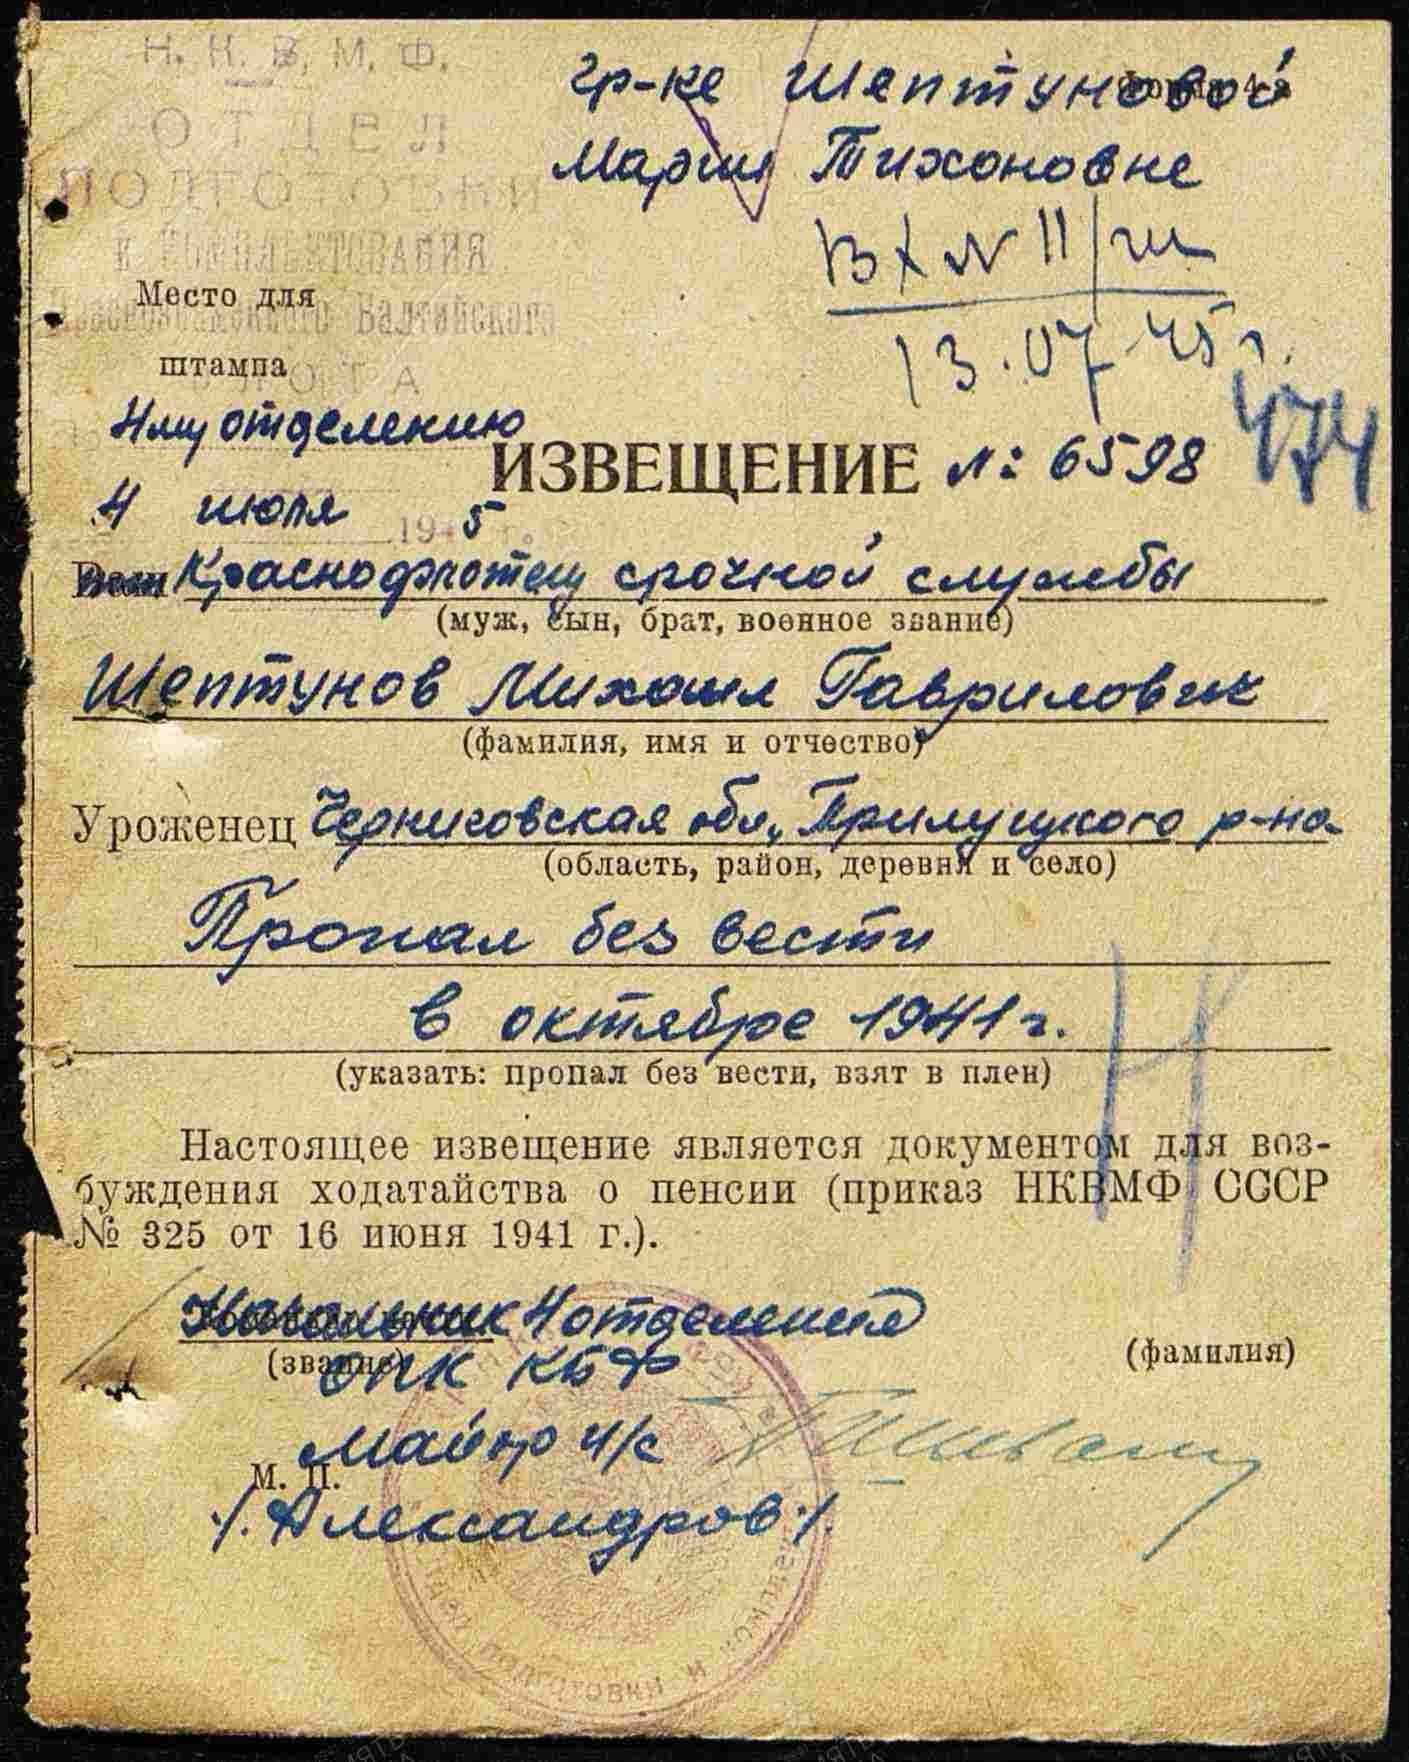 Н. К. В. М. Ф.
ОТДЕЛ
ПОДГОТОВКИ
и КОМПЛЕКТОВАНИЯ
Краснознаменного Балтийского
ФЛОТА
гр-ке Шептуновой
Марии Тихоновне
Вх N 11/
13.07.45 г.
Место для
штампа
474
4 июля 1945 г.
ИЗВЕЩЕНИЕ №: 6598
Ваш Краснофлотец срочной службы
(муж, сын, брат, военное звание)
Шептунов Михаил Гаврилович
(фамилия, имя и отчество)
Уроженец Черниговская обл., Прилуцкого р-на
(область, район, деревня и село)
Пропал без вести
в октябре 1941 г.
(указать: пропал без вести, взят в плен)
Н
Настоящее извещение является документом для воз-
буждения ходатайства о пенсии (приказ НКВМФ СССР
№ 325 от 16 июня 1941 г.).
Начальник 4 отделения
(звание)
(фамилия)
ОПК КБФ
майор и/с
М. П.
/. Александров ./
подготовки и комплект